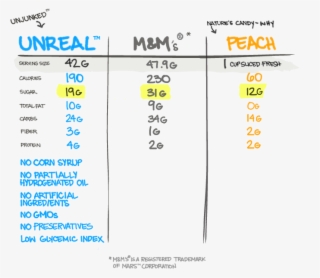 UNJUNKED™
NATURE'S CANDY - WHY
UNREAL™ M&M's®* PEACH
SERVING SIZE 42G 47.9G 1 CUP SLICED FRESH
CALORIES 190 230 60
SUGAR 19G 31G 12G
TOTAL FAT 10G 9G 0G
CARBS 24G 34G 14G
FIBER 3G 1G 2G
PROTEIN 4G 2G 2G
NO CORN SYRUP
NO PARTIALLY
HYDROGENATED OIL
NO ARTIFICIAL
INGREDIENTS
NO GMOs
NO PRESERVATIVES
LOW GLYCEMIC INDEX
*M&M'S® IS A REGISTERED TRADEMARK
OF MARS™ CORPORATION